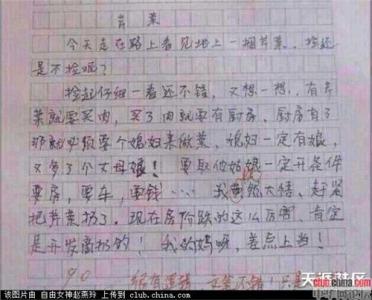 芹菜
今天走在路上看见地上一捆芹菜，捡还
是不捡呢？
捡起仔细一看还不错，又想一想，有芹
菜就要买肉，买了肉就要有厨房，厨房有了
那就必须要个媳妇来做菜，媳妇一定有娘，
又多了个丈母娘！要取他姑娘一定开条件
要房，要车，要钱……我恍然大悟，赶紧
把芹菜扔了。现在房价跌的这么厉害，肯定
是开发商扔的！我的妈呀，差点上当！
90
天涯社区
该图片由 自由女神赵燕玲 上传到 club.china.com
club.china.com